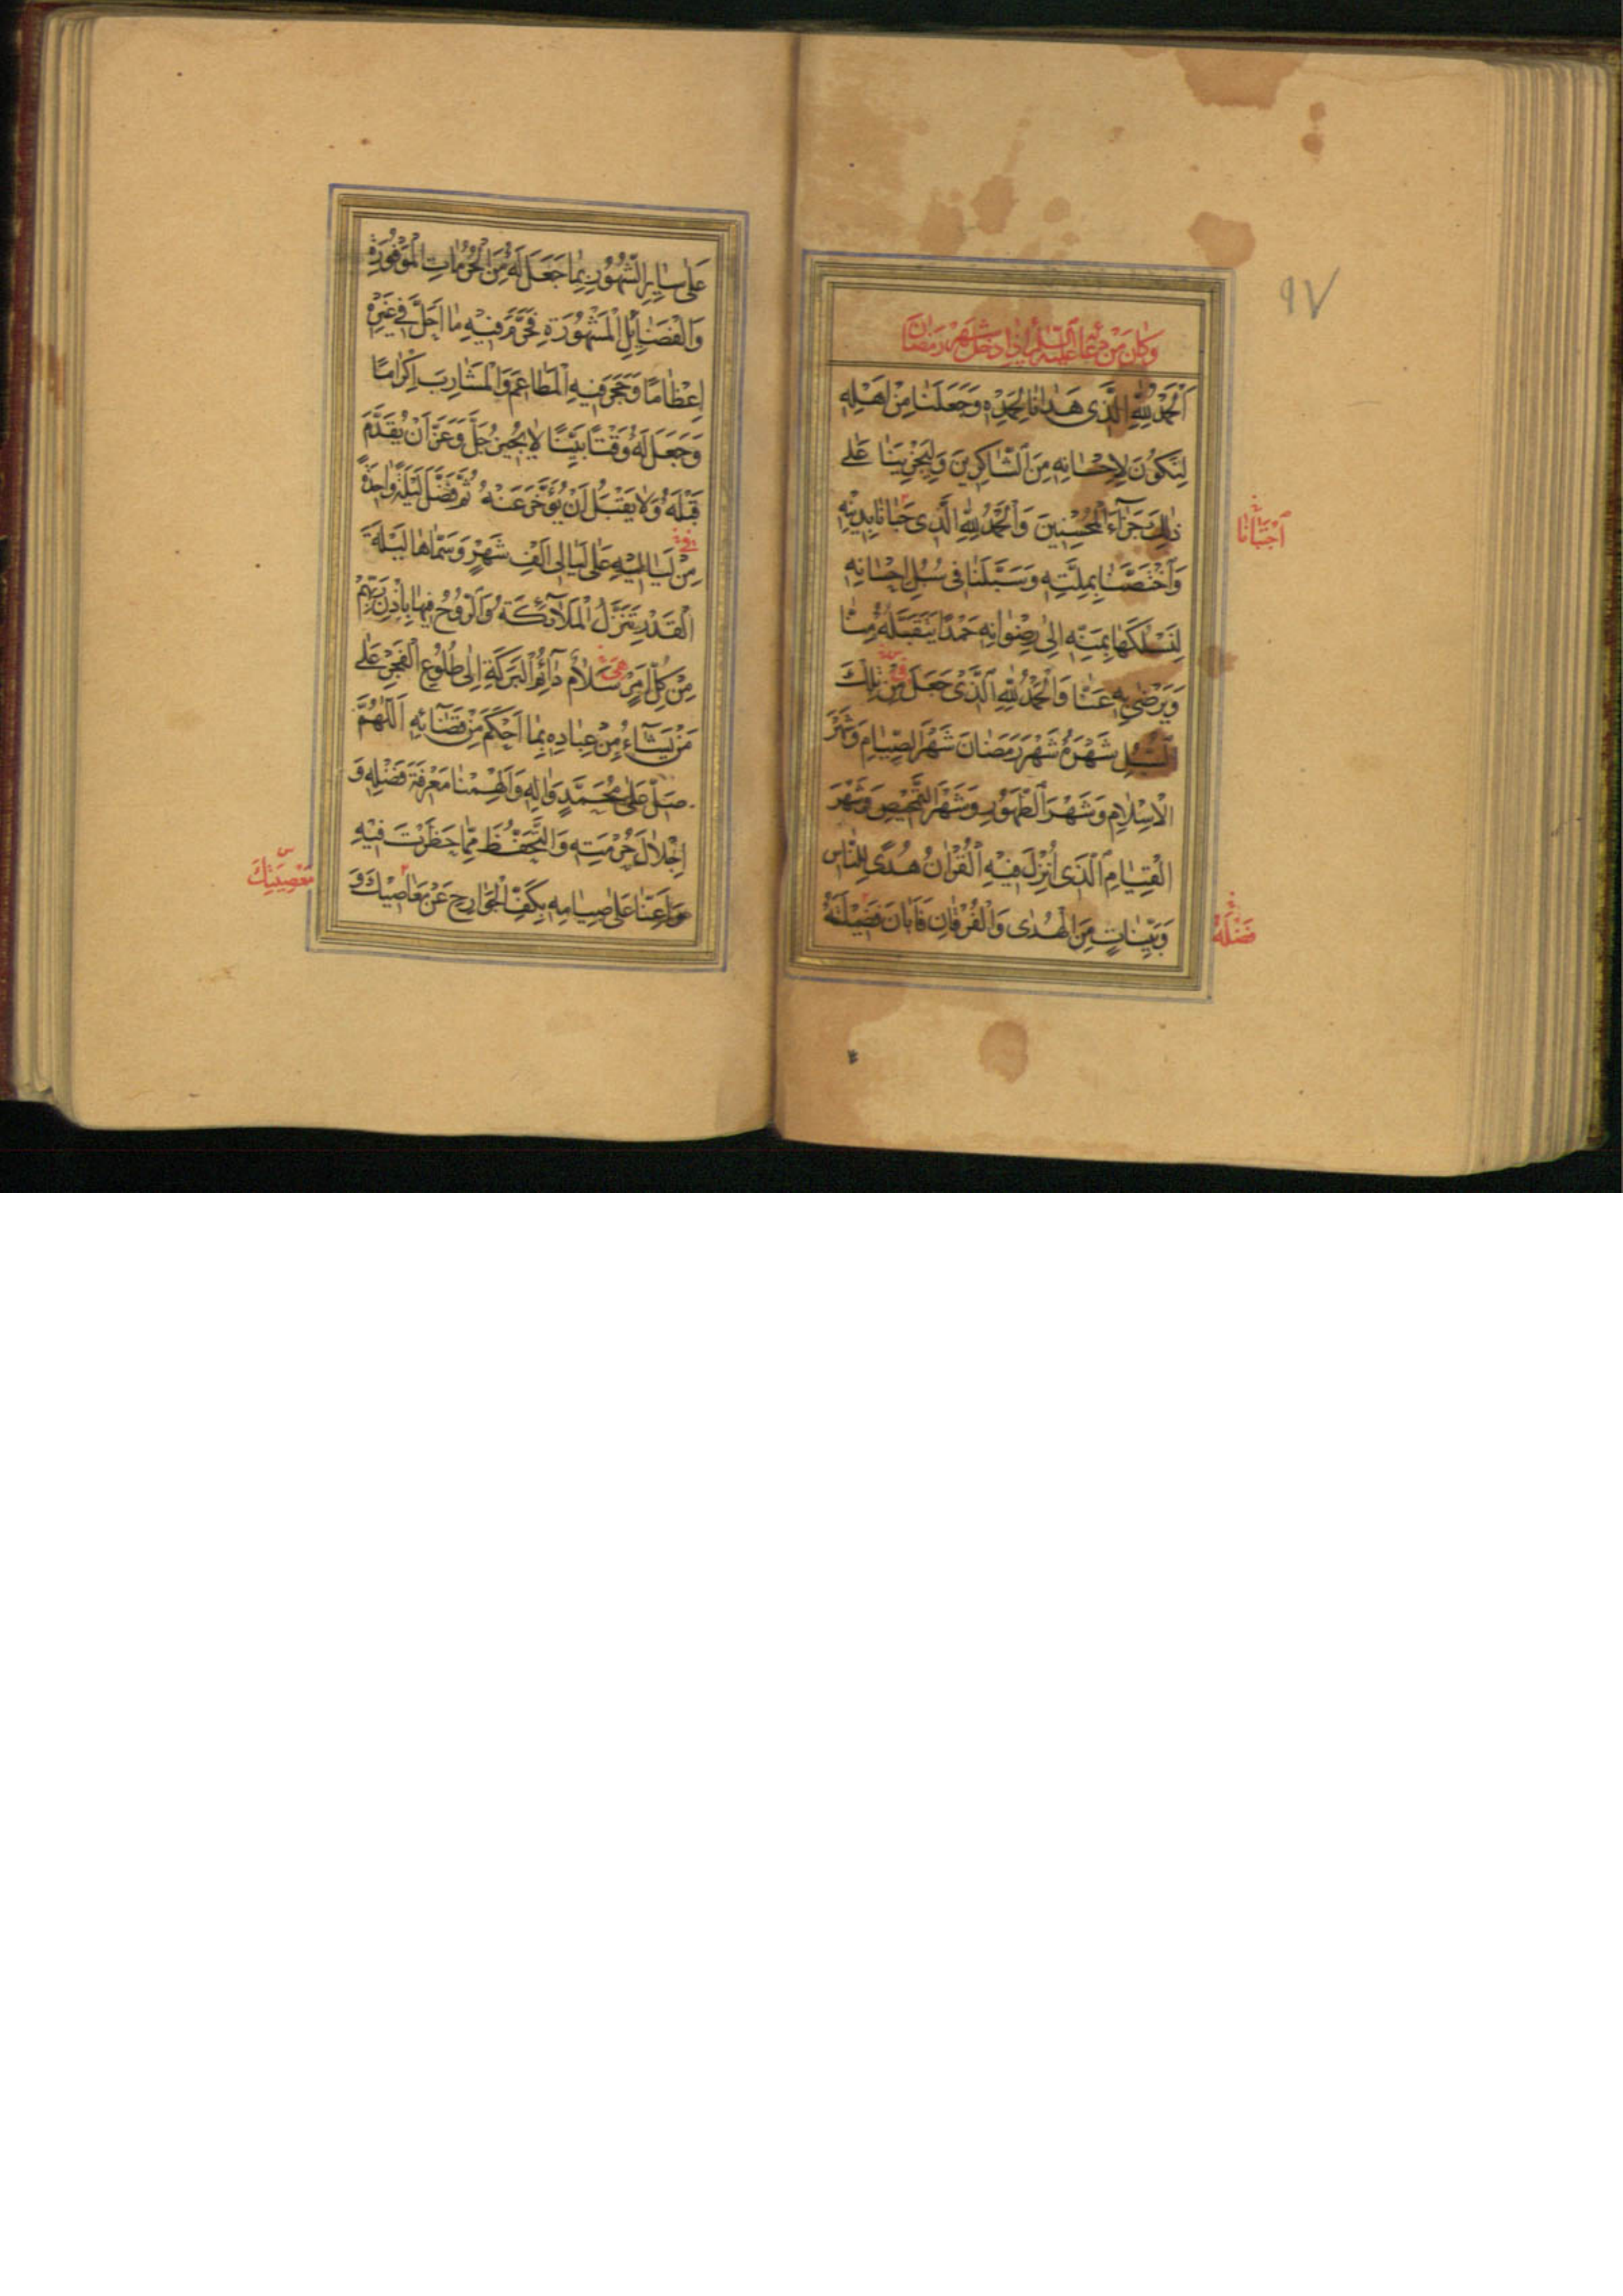 ٩٧
وَكَانَ مِنْ دُعَائِهِ عَلَيْهِ السَّلَامُ إِذَا دَخَلَ شَهْرُ رَمَضَانَ
اَلْحَمْدُ لِلّٰهِ الَّذِى هَدَانَا لِحَمْدِهِ وَجَعَلَنَا مِنْ اَهْلِهِ
لِنَكُونَ لِاِحْسَانِهِ مِنَ الشَّاكِرِينَ وَلِيَجْزِيَنَا عَلٰى
ذٰلِكَ جَزَآءَ الْمُحْسِنِينَ وَالْحَمْدُ لِلّٰهِ الَّذِى حَبَانَا بِدِينِهِ
اَجْتَبَانَا
وَاخْتَصَّنَا بِمِلَّتِهِ وَسَبَّلَنَا فِى سُبُلِ اِحْسَانِهِ
لِنَسْلُكَهَا بِمَنِّهِ اِلٰى رِضْوَانِهِ حَمْدًا يَتَقَبَّلُهُ مِنَّا
وَيَرْضٰى بِهِ عَنَّا وَالْحَمْدُ لِلّٰهِ الَّذِى جَعَلَ مِنْ تِلْكَ
السُّبُلِ شَهْرَهُ شَهْرَ رَمَضَانَ شَهْرَ الصِّيَامِ وَشَهْرَ
الْاِسْلَامِ وَشَهْرَ الطَّهُورِ وَشَهْرَ التَّمْحِيصِ وَشَهْرَ
الْقِيَامِ الَّذِى اُنْزِلَ فِيهِ الْقُرْاٰنُ هُدًى لِلنَّاسِ
وَبَيِّنَاتٍ مِنَ الْهُدٰى وَالْفُرْقَانِ فَاَبَانَ فَضِيلَتَهُ
فَضْلَهُ
عَلٰى سَايِرِ الشُّهُورِ بِمَا جَعَلَ لَهُ مِنَ الْحُرُمَاتِ الْمَوْفُورَةِ
وَالْفَضَايِلِ الْمَشْهُورَةِ فَحَرَّمَ فِيهِ مَا اَحَلَّ فِى غَيْرِهِ
اِعْظَامًا وَحَجَرَ فِيهِ الْمَطَاعِمَ وَالْمَشَارِبَ اِكْرَامًا
وَجَعَلَ لَهُ وَقْتًا بَيِّنًا لَا يُجِيزُ جَلَّ وَعَزَّ اَنْ يُقَدَّمَ
قَبْلَهُ وَلَا يَقْبَلُ اَنْ يُؤَخَّرَ عَنْهُ ثُمَّ فَضَّلَ لَيْلَةً وَاحِدَةً
مِنْ لَيَالِيهِ عَلٰى لَيَالِى اَلْفِ شَهْرٍ وَسَمَّاهَا لَيْلَةَ
الْقَدْرِ تَنَزَّلُ الْمَلَآئِكَةُ وَالرُّوحُ فِيهَا بِاِذْنِ رَبِّهِمْ
هِىَ
مِنْ كُلِّ اَمْرٍ سَلَامٌ دَآئِمُ الْبَرَكَةِ اِلٰى طُلُوعِ الْفَجْرِ عَلٰى
مَنْ يَشَآءُ مِنْ عِبَادِهِ بِمَا اَحْكَمَ مِنْ قَضَآئِهِ اَللّٰهُمَّ
صَلِّ عَلٰى مُحَمَّدٍ وَاٰلِهِ وَاَلْهِمْنَا مَعْرِفَةَ فَضْلِهِ وَ
اِجْلَالَ حُرْمَتِهِ وَالتَّحَفُّظَ مِمَّا حَظَرْتَ فِيهِ
وَاَعِنَّا عَلٰى صِيَامِهِ بِكَفِّ الْجَوَارِحِ عَنْ مَعَاصِيكَ وَ
مَعْصِيَتِكَ